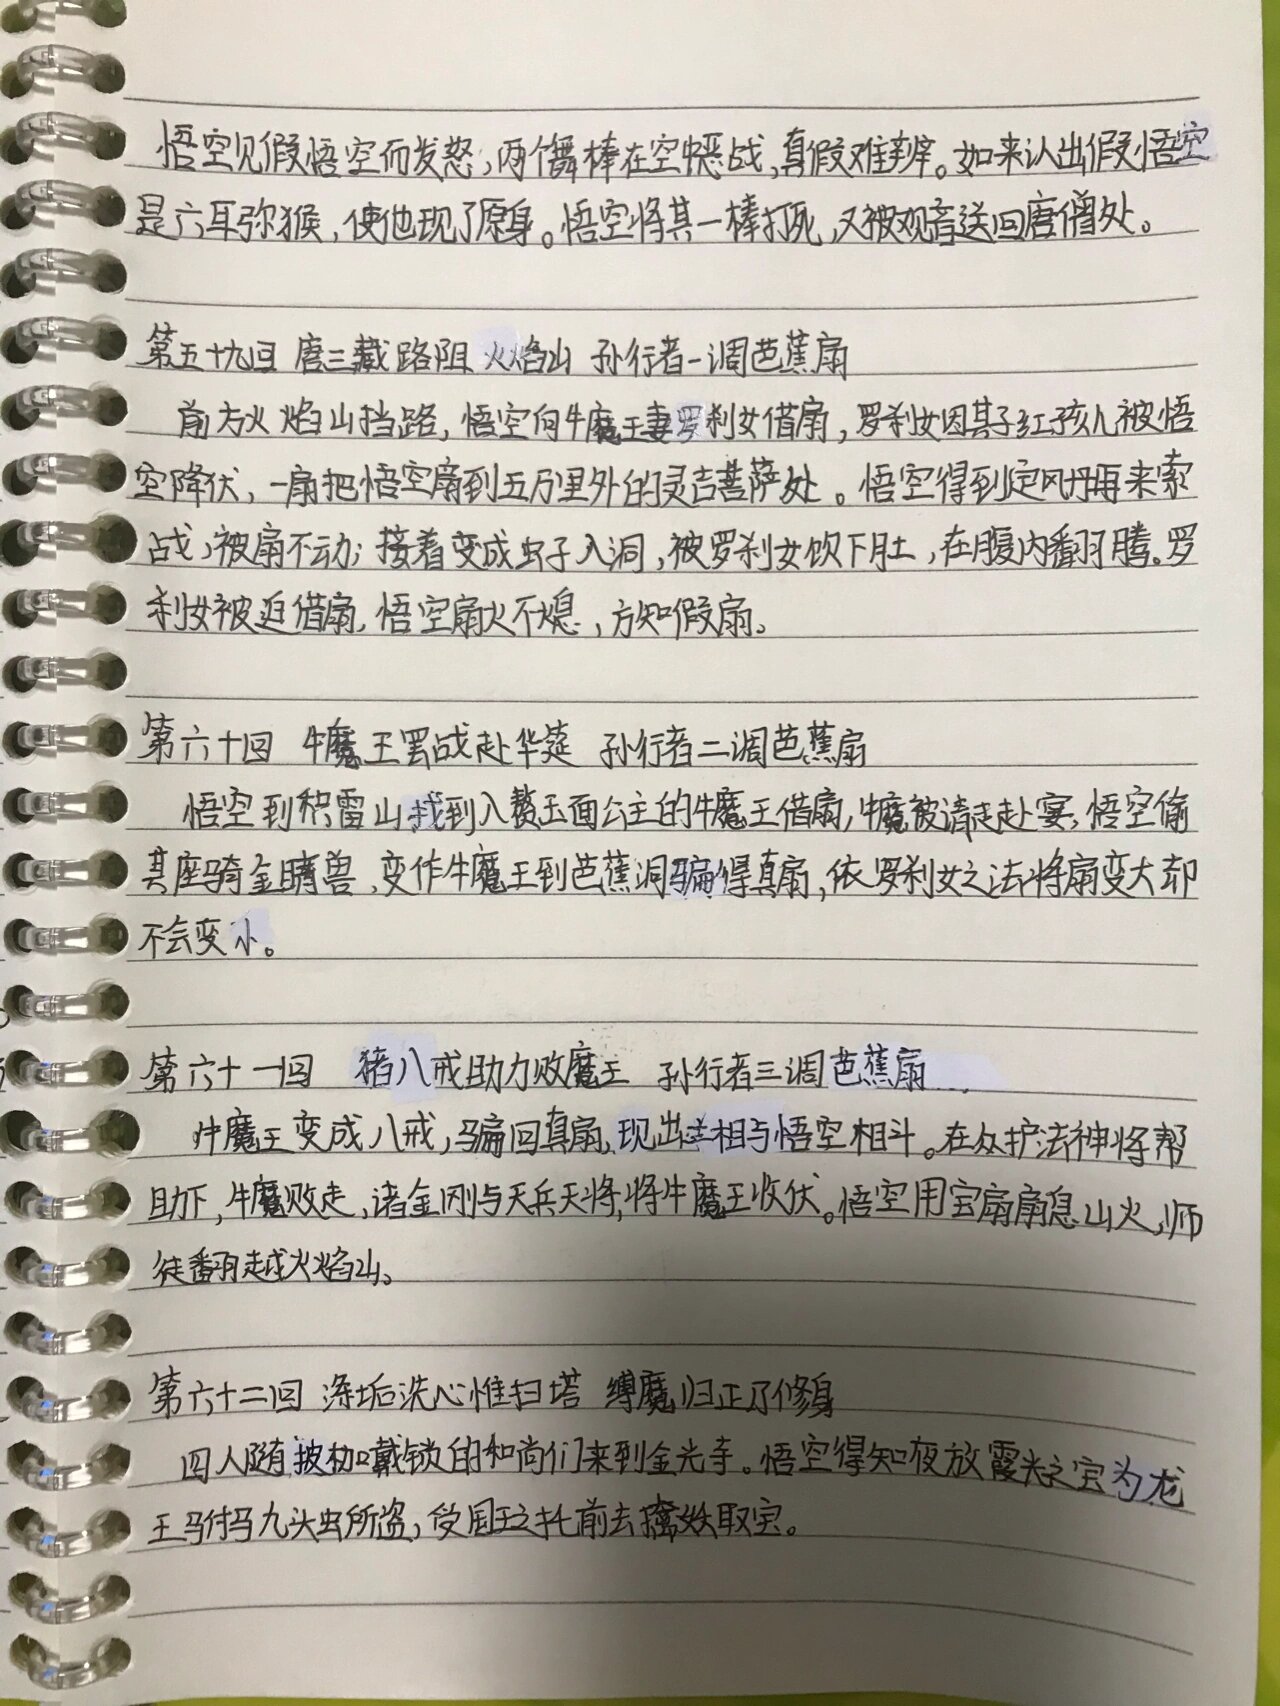 悟空见假悟空而发怒,两个舞棒在空中恶战,真假难辨。如来认出假悟空
是六耳弥猴,使他现了愿身。悟空将其一棒打死,又被观音送回唐僧处。
第五十九回 唐三藏路阻火焰山 孙行者一调芭蕉扇
前方火焰山挡路,悟空向牛魔王妻罗刹女借扇,罗刹女因其子红孩儿被悟
空降伏,一扇把悟空扇到五万里外的灵吉菩萨处。悟空得到定风丹再来索
战,被扇不动;接着变成虫子入洞,被罗刹女饮下肚,在腹内翻腾。罗
刹女被迫借扇,悟空扇火不熄,方知假扇。
第六十回 牛魔王罢战赴华筵 孙行者二调芭蕉扇
悟空到积雷山找到入赘玉面公主的牛魔王借扇,牛魔被请走赴宴,悟空偷
其座骑金睛兽,变作牛魔王到芭蕉洞骗得真扇,依罗刹女之法将扇变大却
不会变小。
第六十一回 猪八戒助力败魔王 孙行者三调芭蕉扇
牛魔王变成八戒,骗回真扇,现出本相与悟空相斗。在众护法神将帮
助下,牛魔败走,诸金刚与天兵天将,将牛魔王收伏。悟空用宝扇扇息山火,师
徒翻越火焰山。
第六十二回 涤垢洗心惟扫塔 缚魔归正乃修身
四人随披枷戴锁的和尚们来到金光寺。悟空得知夜放霞光之宝为龙
王驸马九头虫所盗,受国王之托前去擒妖取宝。